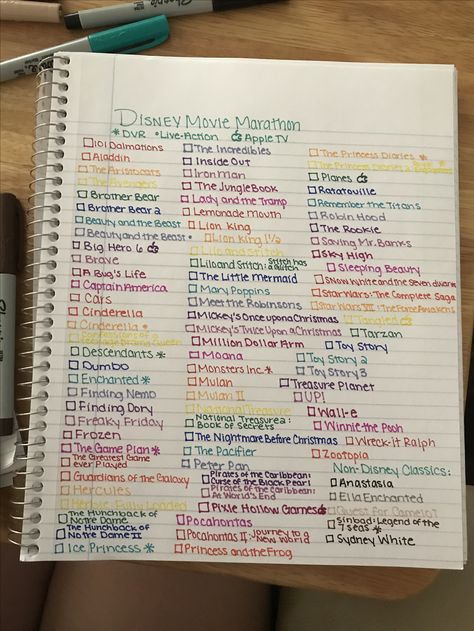 Disney Movie Marathon
*DVR •Live-Action Apple TV
101 Dalmations
Aladdin
The Aristocats
The Avengers
Brother Bear
Brother Bear 2
Beauty and the Beast
Beauty and the Beast •
Big Hero 6
Brave
A Bug's Life
Captain America
Cars
Cinderella
Cinderella •
Confessions of a
Teenage Drama Queen
Descendants *
Dumbo
Enchanted *
Finding Nemo
Finding Dory
Freaky Friday
Frozen
The Game Plan *
The Greatest Game
ever Played
Guardians of the Galaxy
Hercules
Herbie
The Hunchback of
Notre Dame
The Hunchback of
Notre Dame II
Ice Princess *
The Incredibles
Inside Out
Iron Man
The Jungle Book
Lady and the Tramp
Lemonade Mouth
Lion King
Lion King 1½
Lilo and Stitch
Lilo and Stitch: Stitch has a Glitch
The Little Mermaid
Mary Poppins
Meet the Robinsons
Mickey's Once upon a Christmas
Mickey's Twice Upon a Christmas
Million Dollar Arm
Moana
Monsters Inc. *
Mulan
Mulan II
National Treasure
National Treasure 2:
Book of Secrets
The Nightmare Before Christmas
The Pacifier
Peter Pan
Pirates of the Caribbean:
Curse of the Black Pearl
Pirates of the Caribbean:
At World's End
Pixie Hollow Games
Pocahontas
Pocahontas II: Journey to a New World
Princess and the Frog
The Princess Diaries *
The Princess Diaries 2
Planes
Ratatouille
Remember the Titans
Robin Hood
The Rookie
Saving Mr. Banks
Sky High
Sleeping Beauty
Snow White and the Seven dwarves
Star Wars: The Complete Saga
Star Wars VII: The Force Awakens
Tangled
Tarzan
Toy Story
Toy Story 2
Toy Story 3
Treasure Planet
UP!
Wall-e
Winnie the Pooh
Wreck-it Ralph
Zootopia
Non-Disney Classics:
Anastasia
Ella Enchanted
Quest for Camelot
Sinbad: Legend of the
7 Seas *
Sydney White